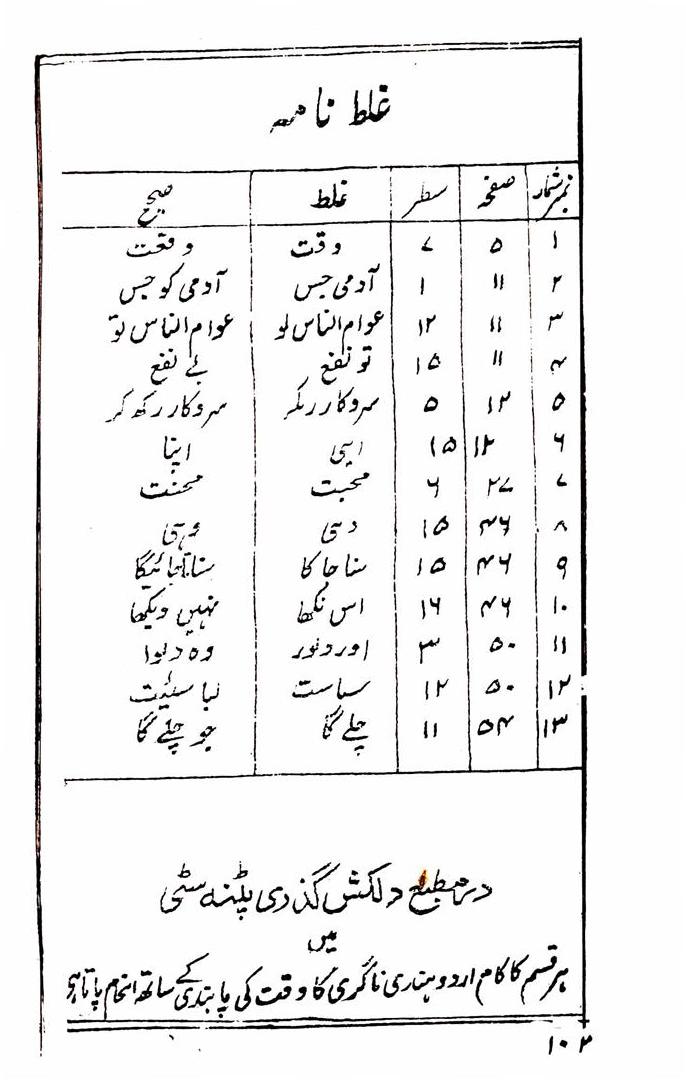 غلط نامہ
نمبر شمار صفحہ سطر غلط صحیح
۱ ۵ ۷ وقت وقعت
۲ ۱۱ ۱ آدمی جس آدمی کو جس
۳ ۱۱ ۱۲ عوام الناس لو عوام الناس تو
۴ ۱۱ ۱۵ تو نفع بے نفع
۵ ۱۲ ۵ سروکار رکر سروکار رکھ کر
۶ ۱۲ ۱۵ ایسی اپنا
۷ ۲۷ ۶ محبت محنت
۸ ۴۶ ۱۵ دسی وہی
۹ ۴۶ ۱۵ سنا جا کا سنا جائیگا
۱۰ ۴۶ ۱۶ اس نکھا نہیں دیکھا
۱۱ ۵۰ ۳ اور دلور وہ دلوا
۱۲ ۵۰ ۱۲ سیاست
۱۳ ۵۴ ۱۱ چلے گا جو چلے گا
در مطبع دلکش گذری پٹنہ سٹی
میں
ہر قسم کا کام اردو ہندی ناگری کا وقت کی پابندی کے ساتھ انجام پاتا ہو
۱۰۲